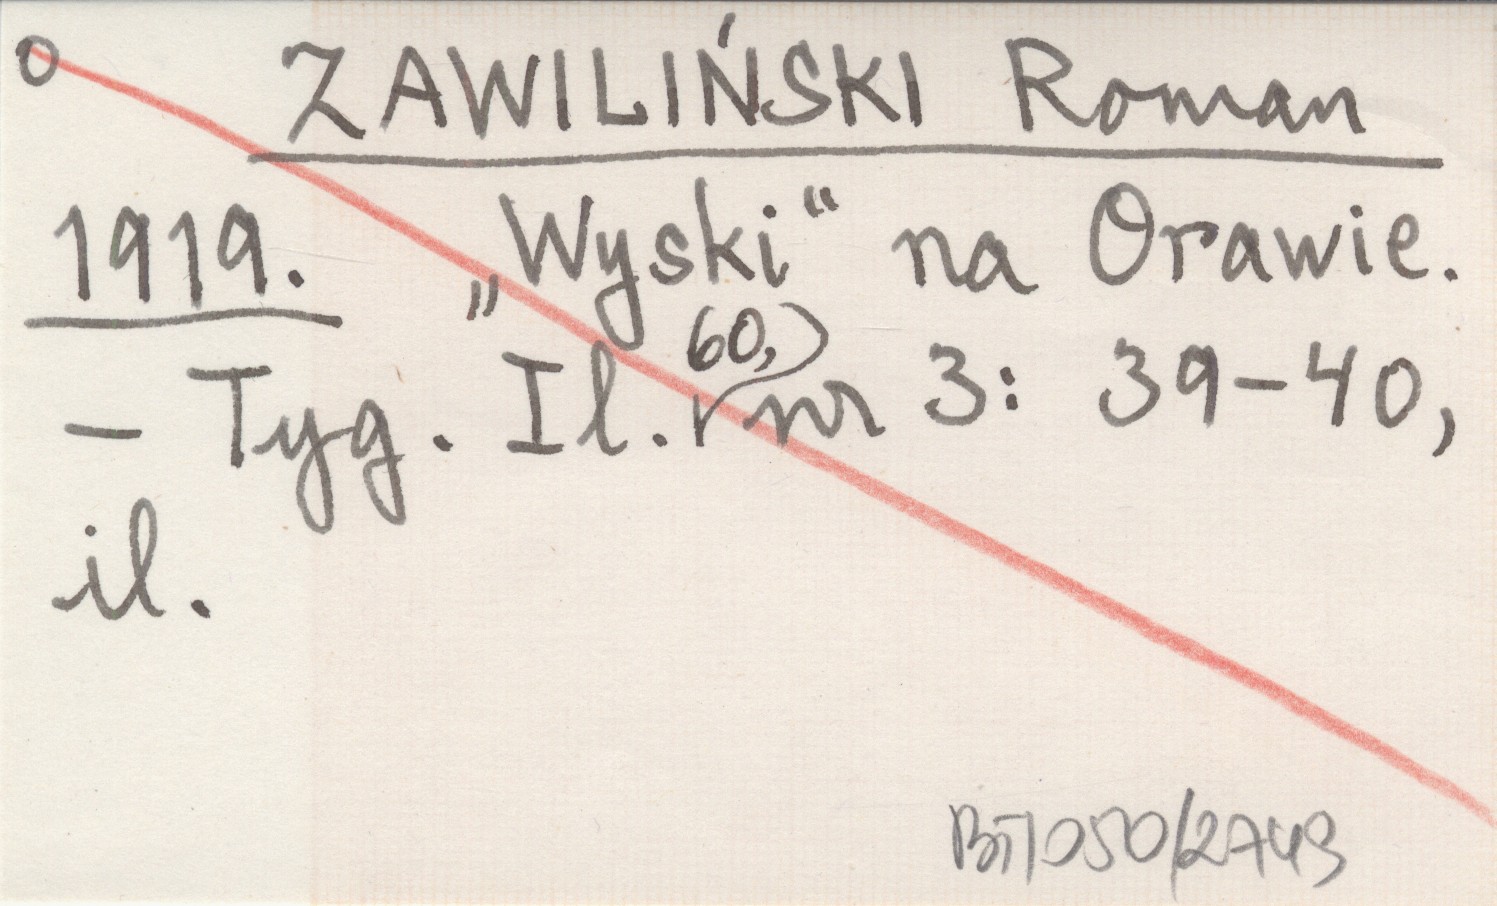 O ZAWILIŃSKI Roman
1919. „Wyski“ na Orawie.
– Tyg. Il. 60, nr 3: 39–40,
il.
BT/050/2743